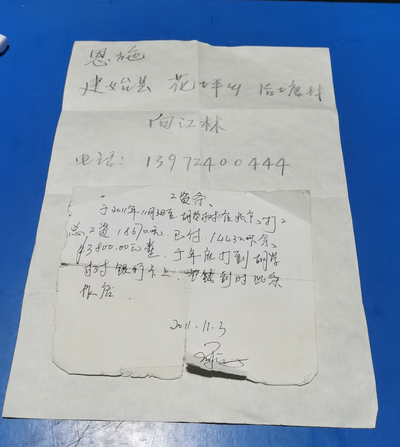 恩施
建始县 花坪乡 后塘村
向江林
电话: 13972400444
工资条
于2011年11月3日 在北京 打工
总工资18670元 已付 14432元 余
¥3800.00元整. 于年底打到胡学
银行卡上. 到时此条
作废
2011.11.3